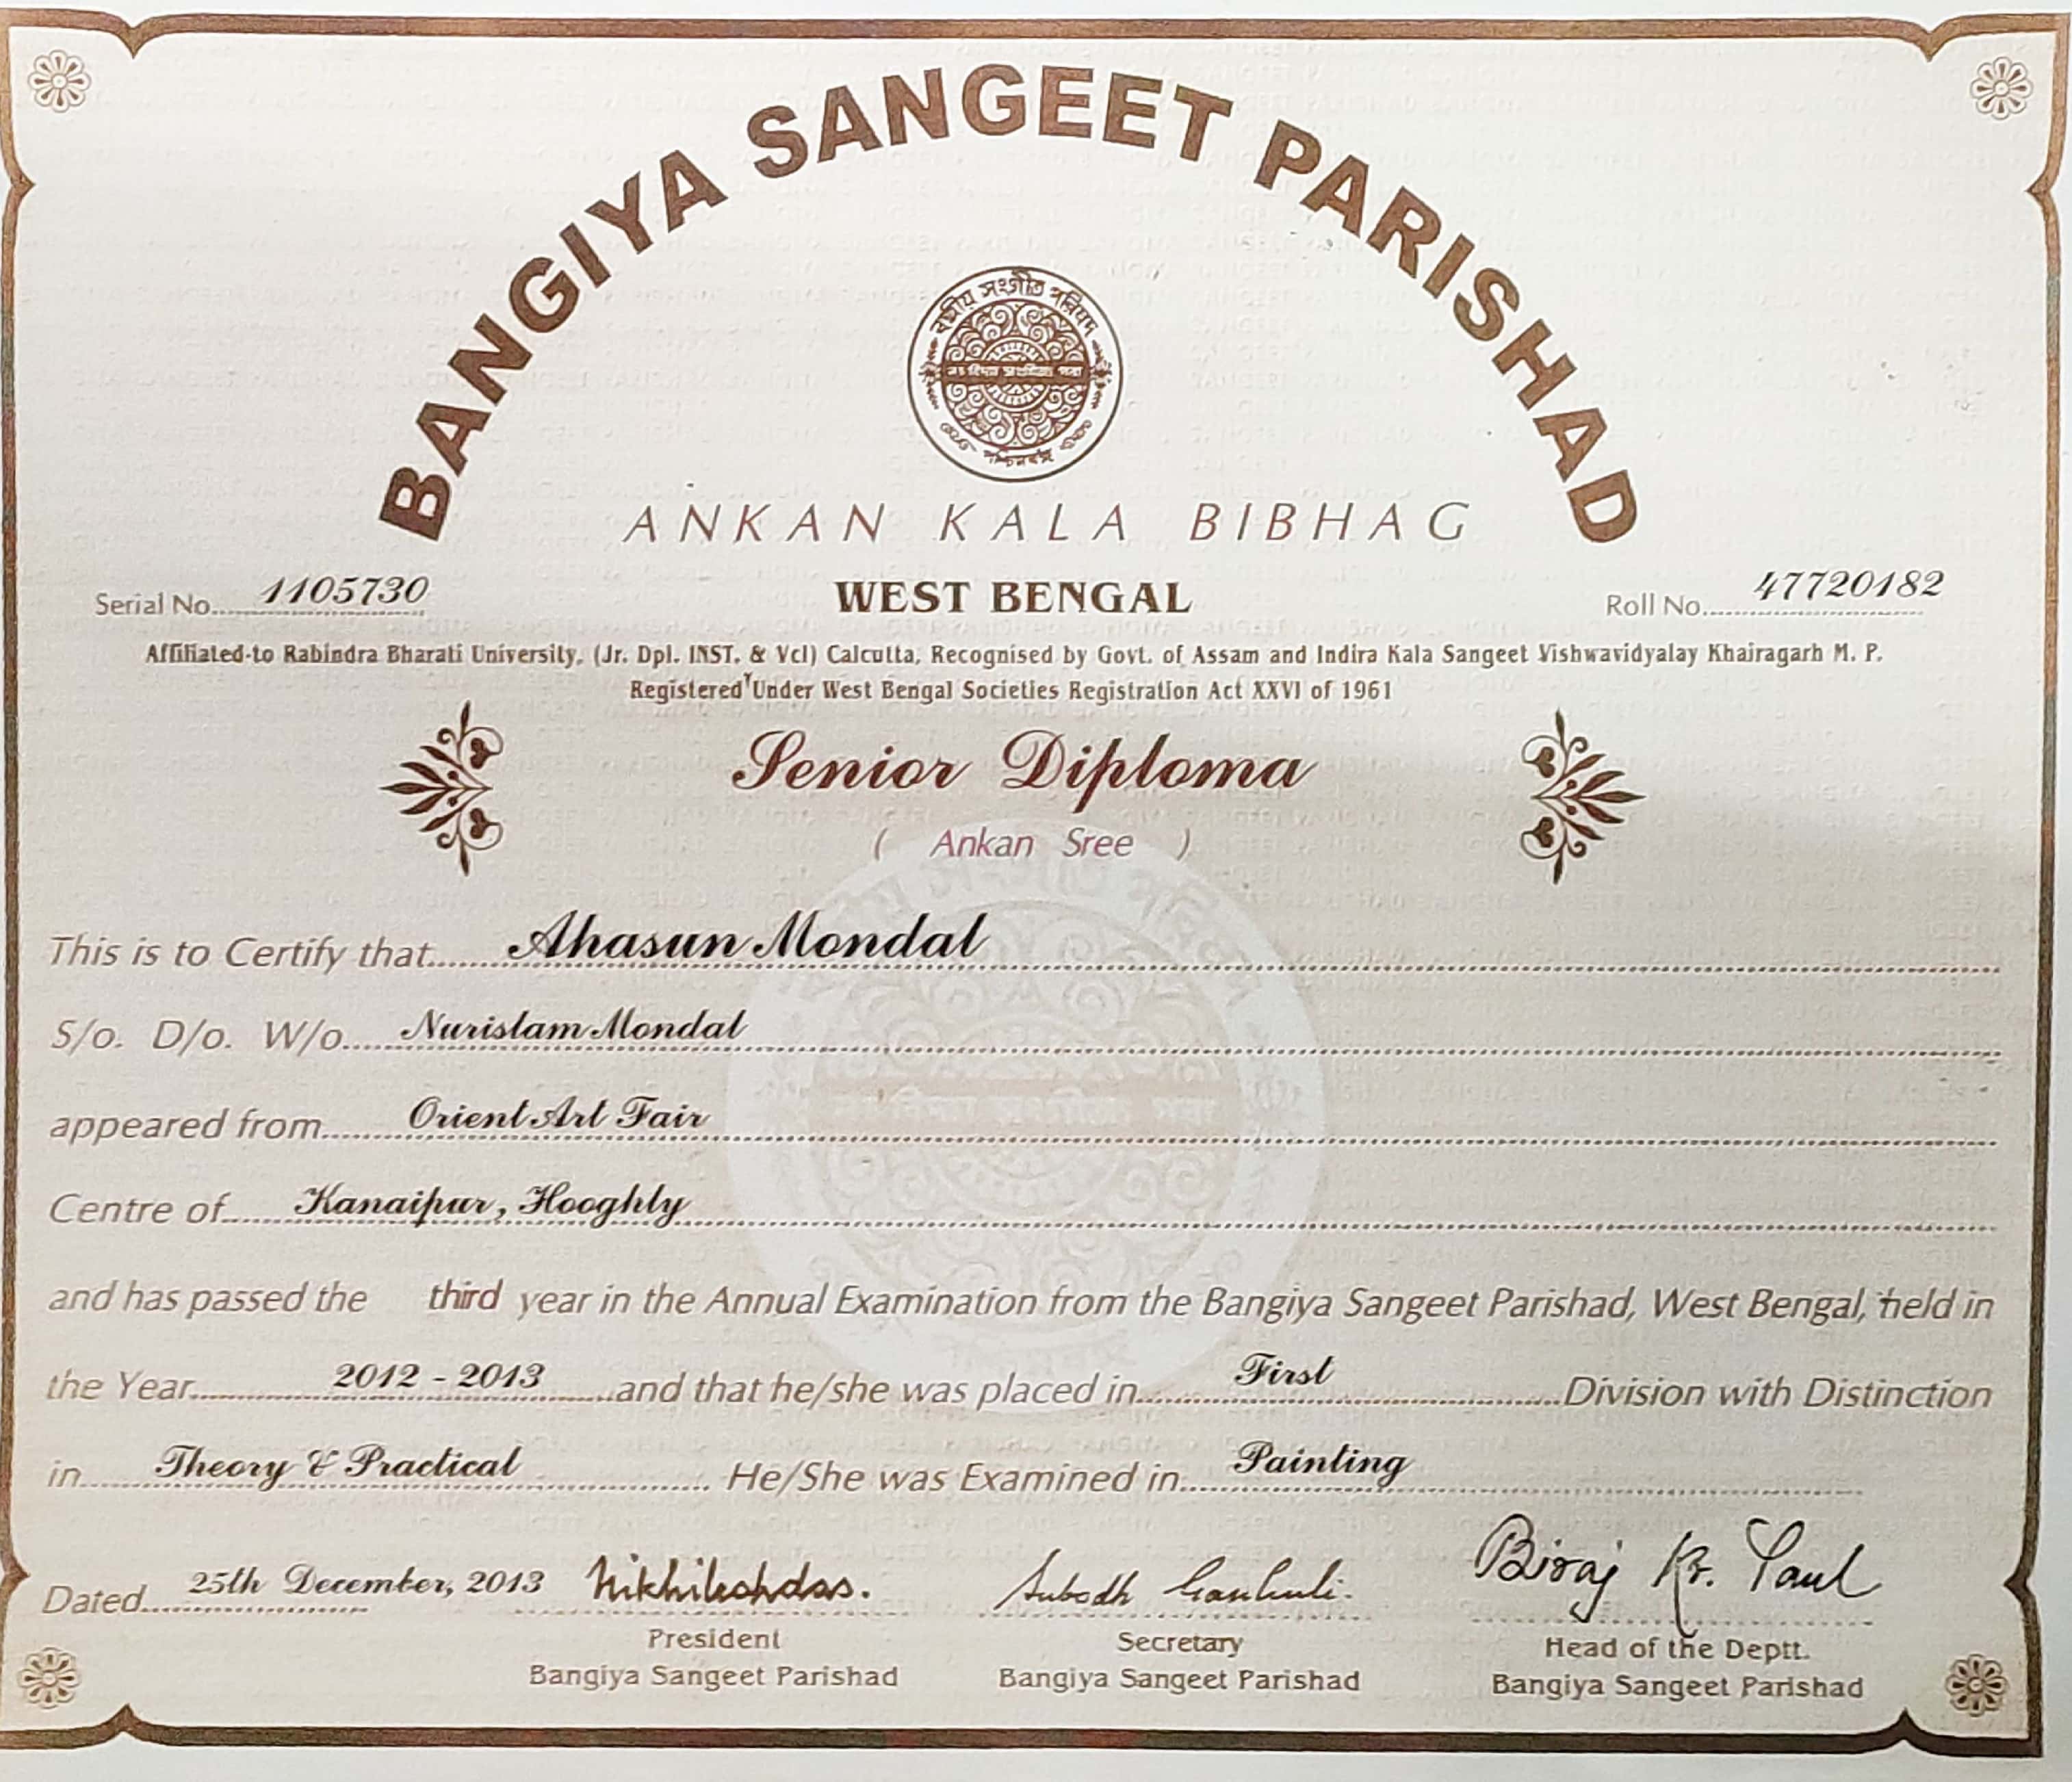 BANGIYA SANGEET PARISHAD
বঙ্গীয় সংগীত পরিষদ
পশ্চিমবঙ্গ
ANKAN KALA BIBHAG
Serial No. 1105730
WEST BENGAL
Roll No. 47720182
Affiliated-to Rabindra Bharati University, (Jr. Dpl. INST. & Vcl) Calcutta, Recognised by Govt. of Assam and Indira Kala Sangeet Vishwavidyalay Khairagarh M. P.
Registered Under West Bengal Societies Registration Act XXVI of 1961
Senior Diploma
( Ankan Sree )
This is to Certify that Ahasun Mondal
S/o. D/o. W/o. Nurislam Mondal
appeared from Orient Art Fair
Centre of Kanaipur, Hooghly
and has passed the third year in the Annual Examination from the Bangiya Sangeet Parishad, West Bengal, held in
the Year 2012 - 2013 and that he/she was placed in First Division with Distinction
in Theory & Practical He/She was Examined in Painting
Dated 25th December, 2013
Nikhileshdas.
Subodh Ganguli.
Biraj Kr. Paul
President
Bangiya Sangeet Parishad
Secretary
Bangiya Sangeet Parishad
Head of the Deptt.
Bangiya Sangeet Parishad